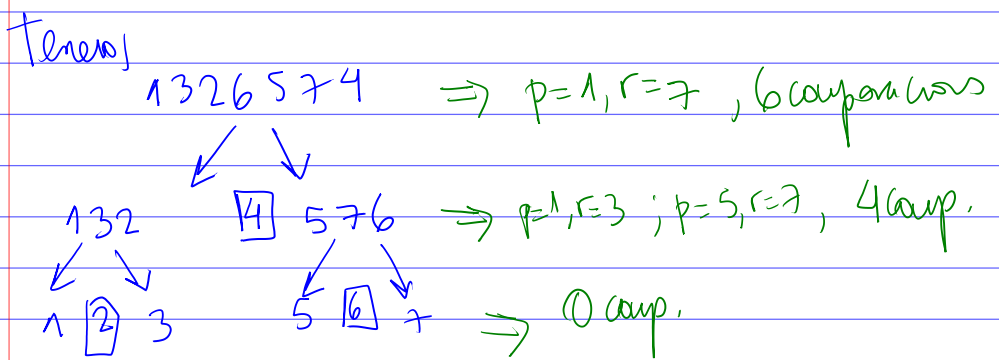 Tenemos
1 3 2 6 5 7 4 ⇒ p=1, r=7 , 6 comparacions
1 3 2 4 5 7 6 ⇒ p=1, r=3 ; p=5, r=7 , 4 comp.
1 2 3 5 6 7 ⇒ 0 comp.